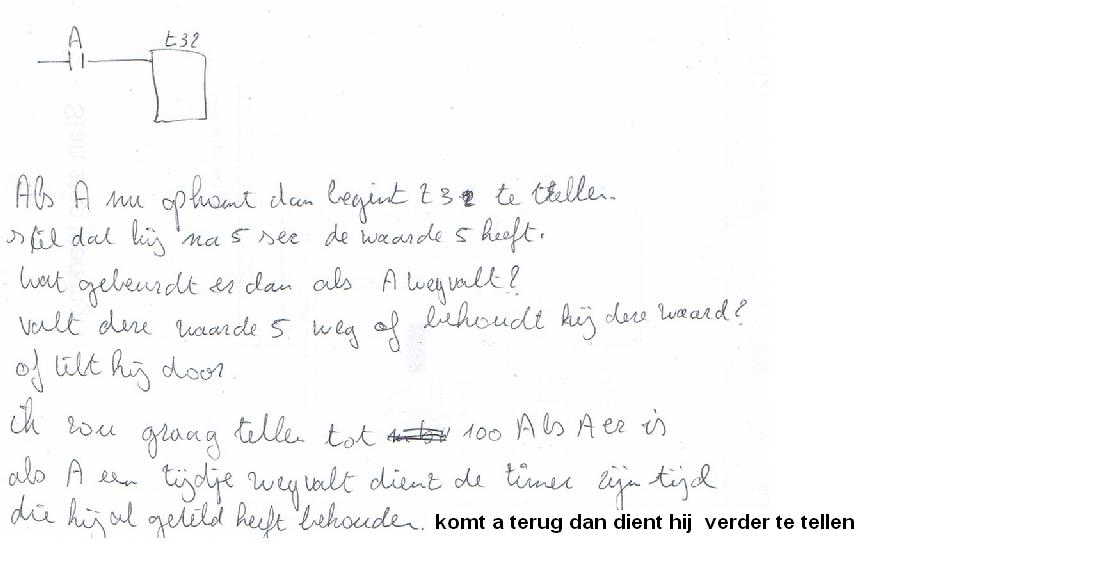 A t32
Als A nu opkomt dan begint t32 te tellen.
stel dat hij na 5 sec de waarde 5 heeft.
Wat gebeurdt er dan als A wegvalt?
valt deze waarde 5 weg of behoudt hij deze waard?
of telt hij door.
ik zou graag tellen tot 100 Als A er is
als A een tijdje wegvalt dient de timer zijn tijd
die hij al geteld heeft behouden. komt a terug dan dient hij verder te tellen